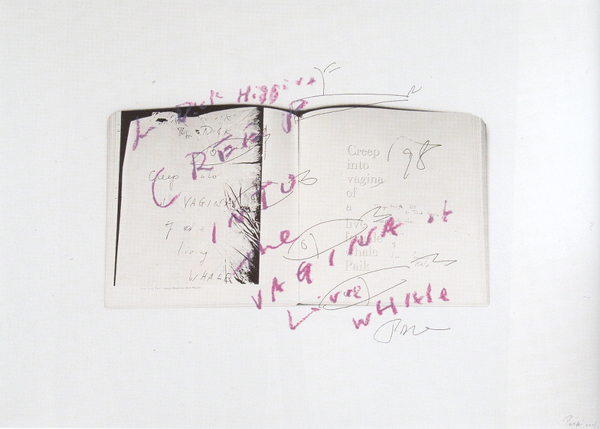 Dick Higgins
CREEP
INTO
the
VAGINA of
Live
WHALE
Creep into
VAGINA
of a
living
WHALE
Creep
into
vagina
of
a
live
whale
Paik
198
6